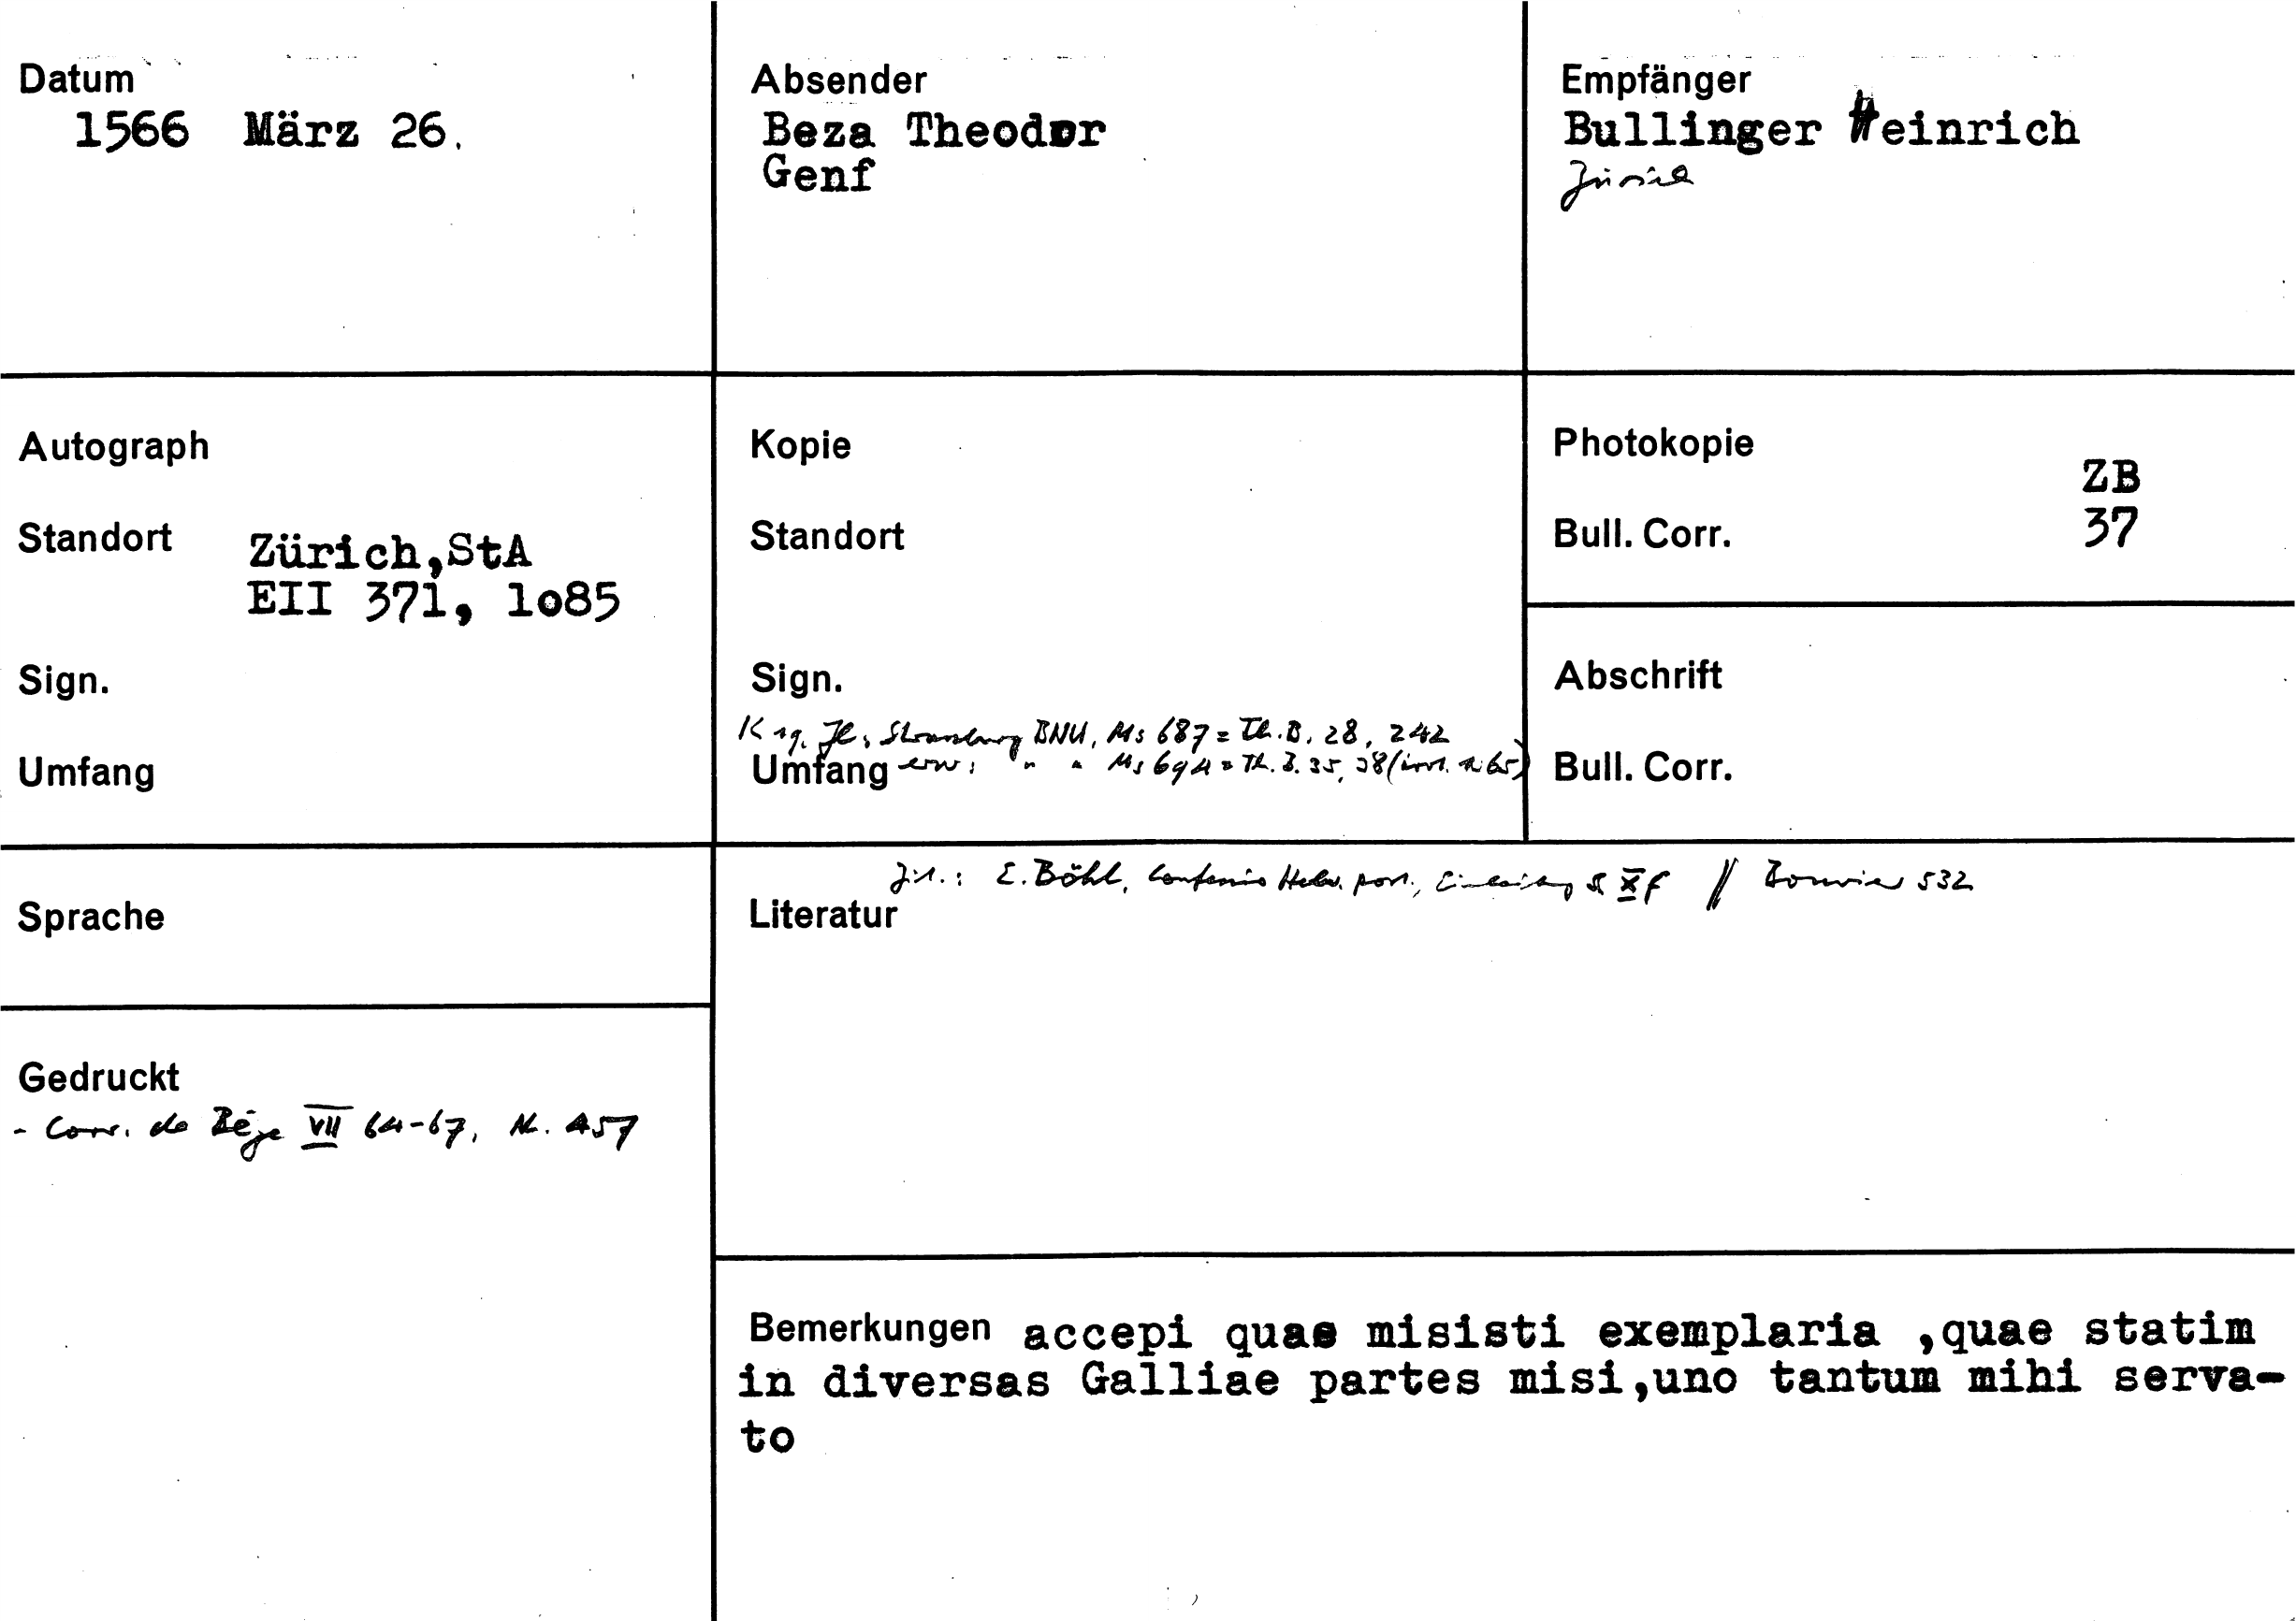 Datum
1566 März 26.
Absender
Beza Theodor
Genf
Empfänger
Bullinger Heinrich
Zürich
Autograph
Standort Zürich,StA
EII 371, 1o85
Sign.
Umfang
Kopie
Standort
Sign.
Strassburg BNU, Ms 687 = Th. B. 28, 242
Umfang " " Ms 694 = Th. B. 35, 38
Photokopie
ZB
Bull. Corr. 37
Abschrift
Bull. Corr.
Sprache
Zit.: E. Böhl, Confessio Helv. post., Einleitung S. Xf // Bouvier 532
Literatur
Gedruckt
- Corr. de Bèze VII 64-67, Nr. 457
Bemerkungen accepi quae misisti exemplaria ,quae statim
in diversas Galliae partes misi,uno tantum mihi serva-
to